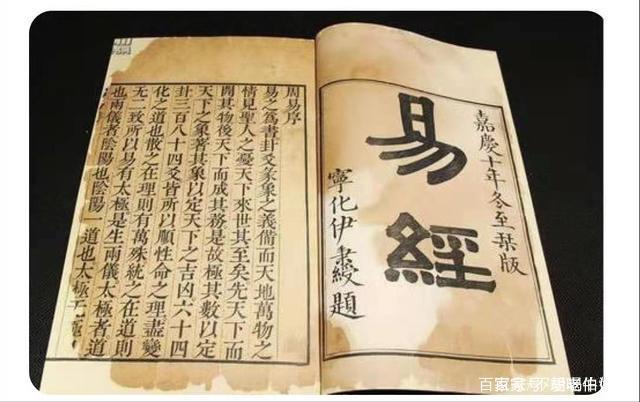 嘉慶十年冬至栞版
易經
寧化伊秉綬題
周易序
易之為書卦爻彖象之義備而天地萬物之
情見聖人之憂天下來世其至矣先天下而
開其物後天下而成其務是故極其數以定
天下之象著其象以定天下之吉凶六十四
卦三百八十四爻皆所以順性命之理盡變
化之道也散之在理則有萬殊統之在道則
无二致所以易有太極是生兩儀太極者道
也兩儀者陰陽也陰陽一道也太極无極
百家